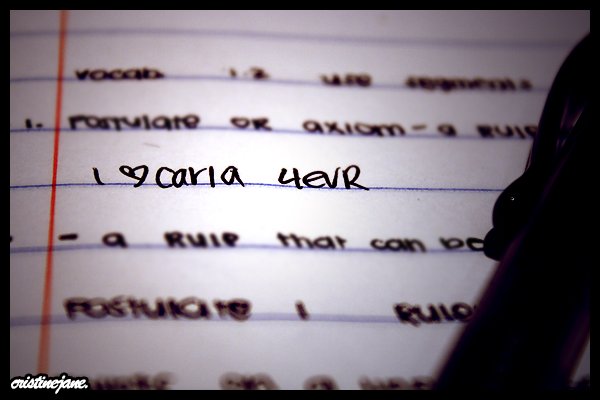 vocab 1.2 use segments
1. Postulate or axiom - a rule
i ♡ carla 4evR
- a rule that can be
Postulate 1 Rule
cristinejane.